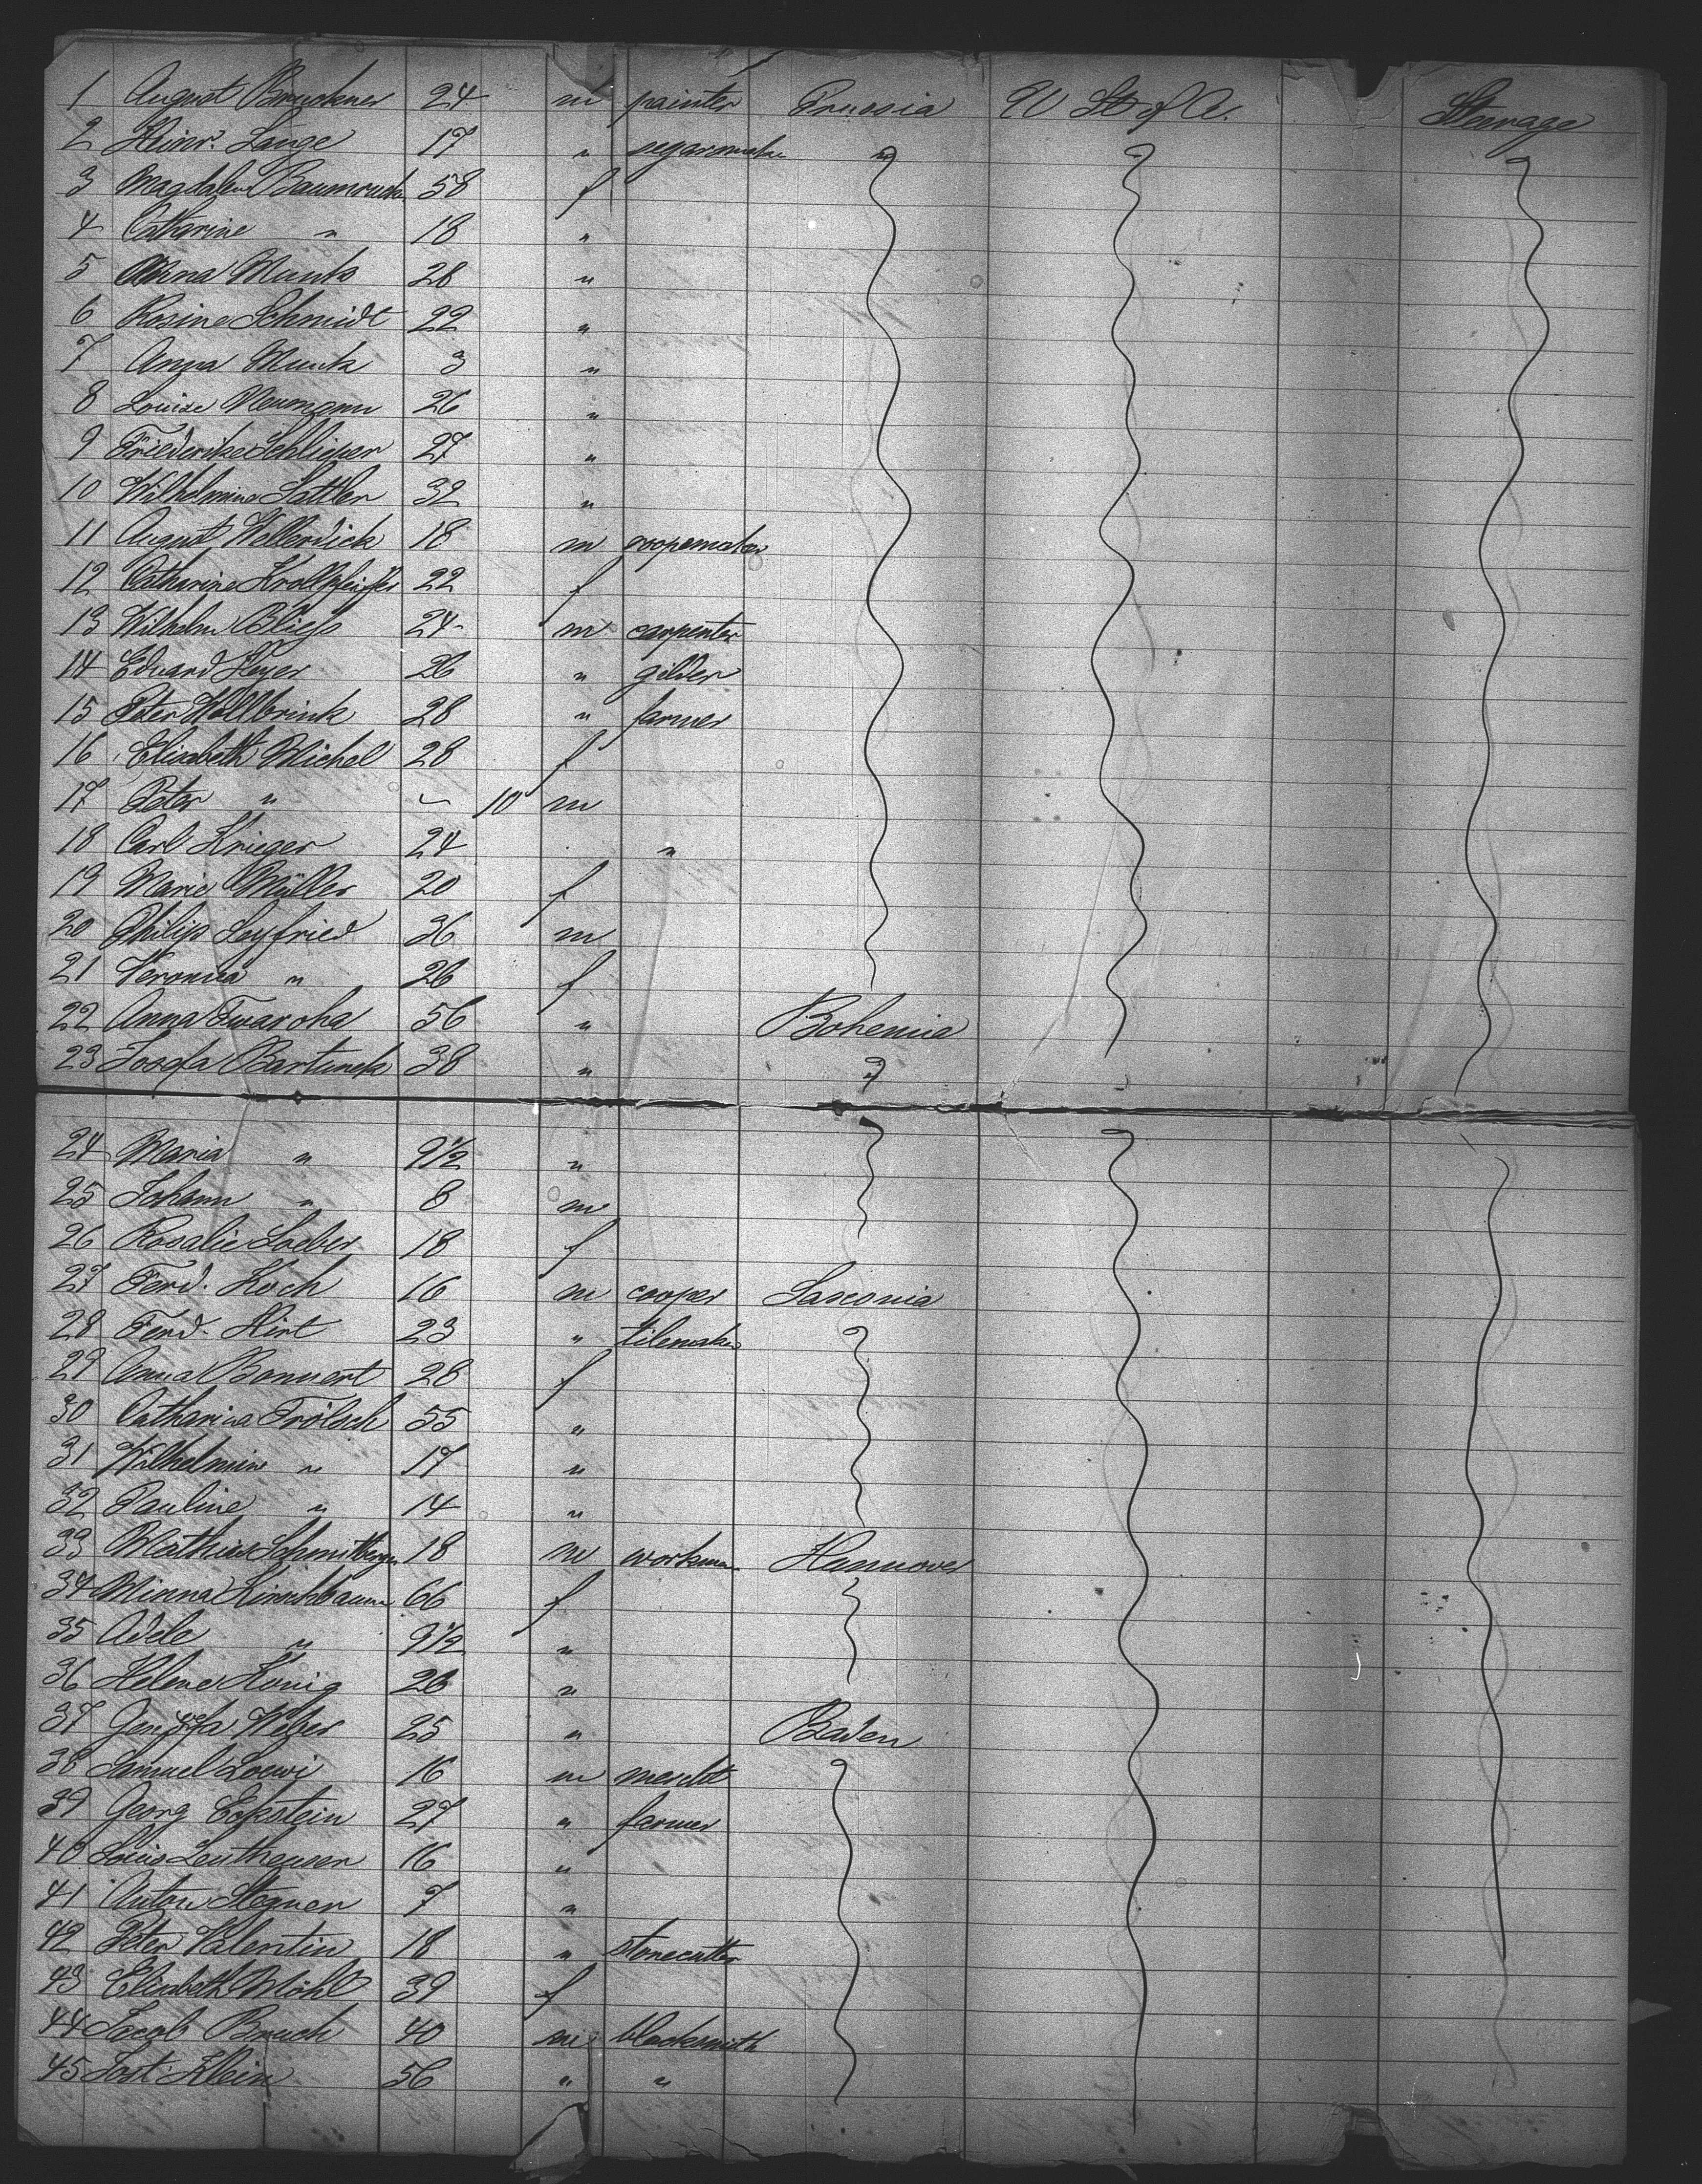 1 August Bruckner 24 m painter Prussia U St of A. Steerage
2 Heinr. Lange 17 " segarmaker "
3 Magdalena Baumruck 58 f
4 Catharine " 18 "
5 Anna Munk 28 "
6 Rosine Schmidt 22 "
7 Anna Munk 3 "
8 Louise Neumann 26 "
9 Friederike Schlieper 27 "
10 Wilhelmine Sattler 32 "
11 August Wellerdick 18 m ropemaker
12 Catharine Krollpfeiffer 22 f
13 Wilhelm Bliefs 24 m carpenter
14 Eduard Heyer 26 " gilder
15 Peter Wellbrink 28 " farmer
16 Elisabeth Michel 28 f
17 Peter " ~ 10 m
18 Carl Krieger 24 "
19 Marie Müller 20 f
20 Philip Seyfried 36 m
21 Veronica " 26 f
22 Anna Twaroha 56 " Bohemia
23 Josefa Bartunek 38 " "
24 Maria " 9 1/2 "
25 Johann " 8 m
26 Rosalie Loeber 18 f
27 Ferd. Koch 16 m cooper Saxonia
28 Ferd. Hirt 23 " tilemaker
29 Anna Bonnert 28 f
30 Catharina Trölsch 55 "
31 Wilhelmine " 17 "
32 Pauline " 14 "
33 Mathias Schmitberger 18 m workman Hannover
34 Minna Kirschbaum 66 f
35 Adele " 9 1/2 "
36 Helene König 28 "
37 Weber 25 " Baden
38 Samuel Loewi 16 m mercht
39 Georg Eckstein 27 " farmer
40 Louis Leutheuser 16 "
41 Anton Stegner 7 "
42 Peter Valentin 18 " stonecutter
43 Elisabeth Möhl 39 f
44 Jacob Bruch 40 m blacksmith
45 Jost. Klein 56 " "